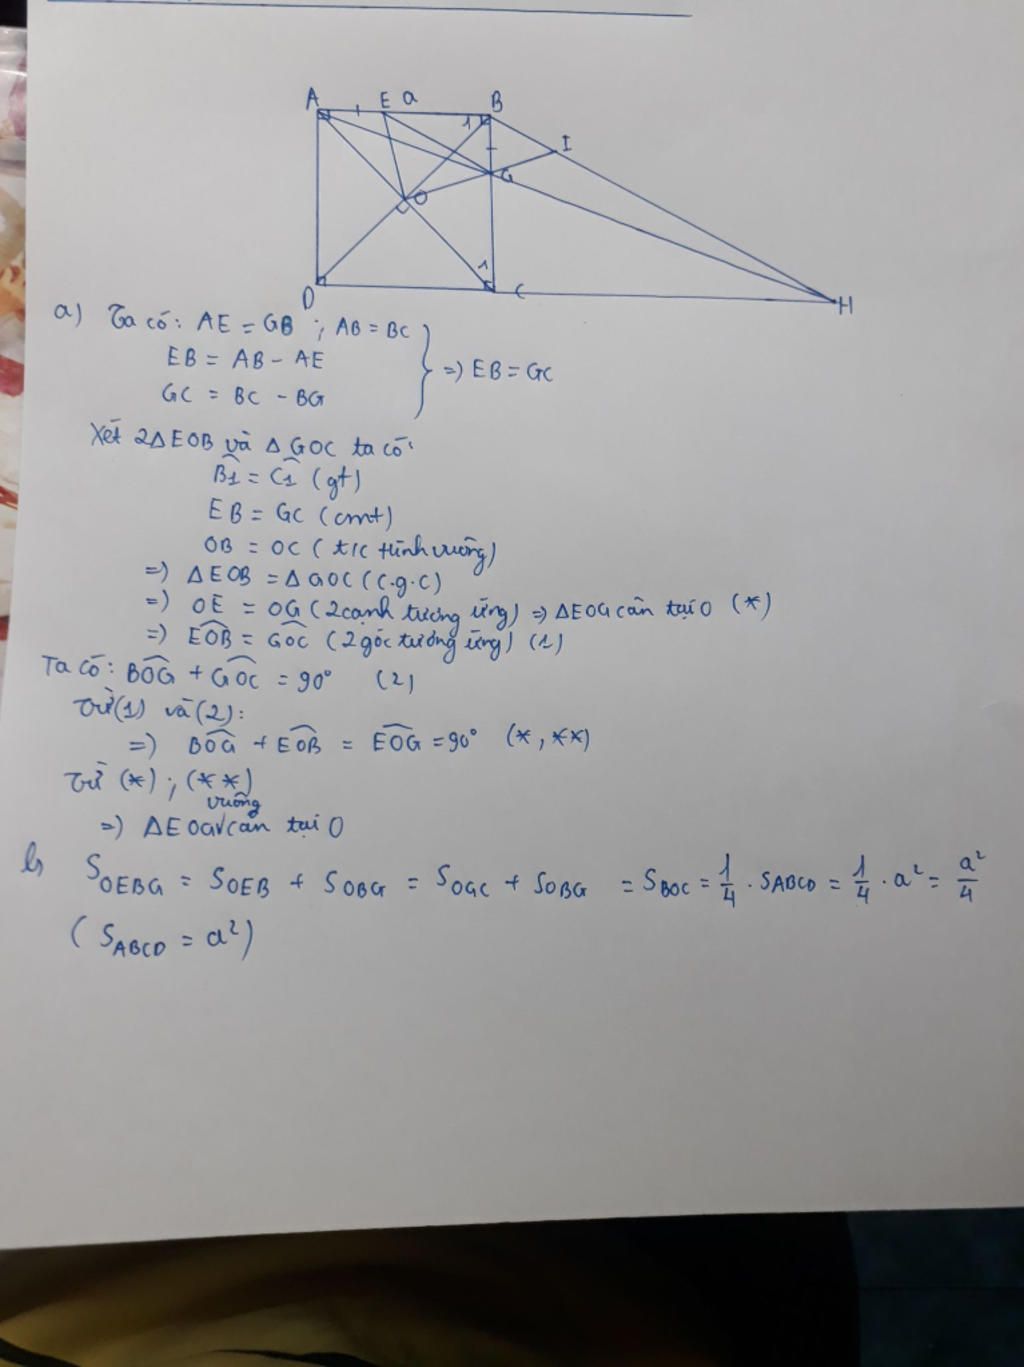 A E a B
1
I
G
O
1
D C H
a) Ta có: AE = GB ; AB = BC
EB = AB - AE
GC = BC - BG
} => EB = GC
Xét 2ΔEOB và ΔGOC ta có:
B̂1 = Ĉ1 (gt)
EB = GC (cmt)
OB = OC ( t/c hình vuông)
=> ΔEOB = ΔGOC (c.g.c)
=> OE = OG (2 cạnh tương ứng) => ΔEOG cân tại O (*)
=> EÔB = GÔC (2 góc tương ứng) (1)
Ta có: BÔG + GÔC = 90° (2)
Từ (1) và (2):
=> BÔG + EÔB = EÔG = 90° (*, **)
Từ (*) ; (**)
vuông
=> ΔEOG√cân tại O
b, S_OEBG = S_OEB + S_OBG = S_OGC + S_OBG = S_BOC = 1/4 . S_ABCD = 1/4 . a² = a²/4
( S_ABCD = a²)